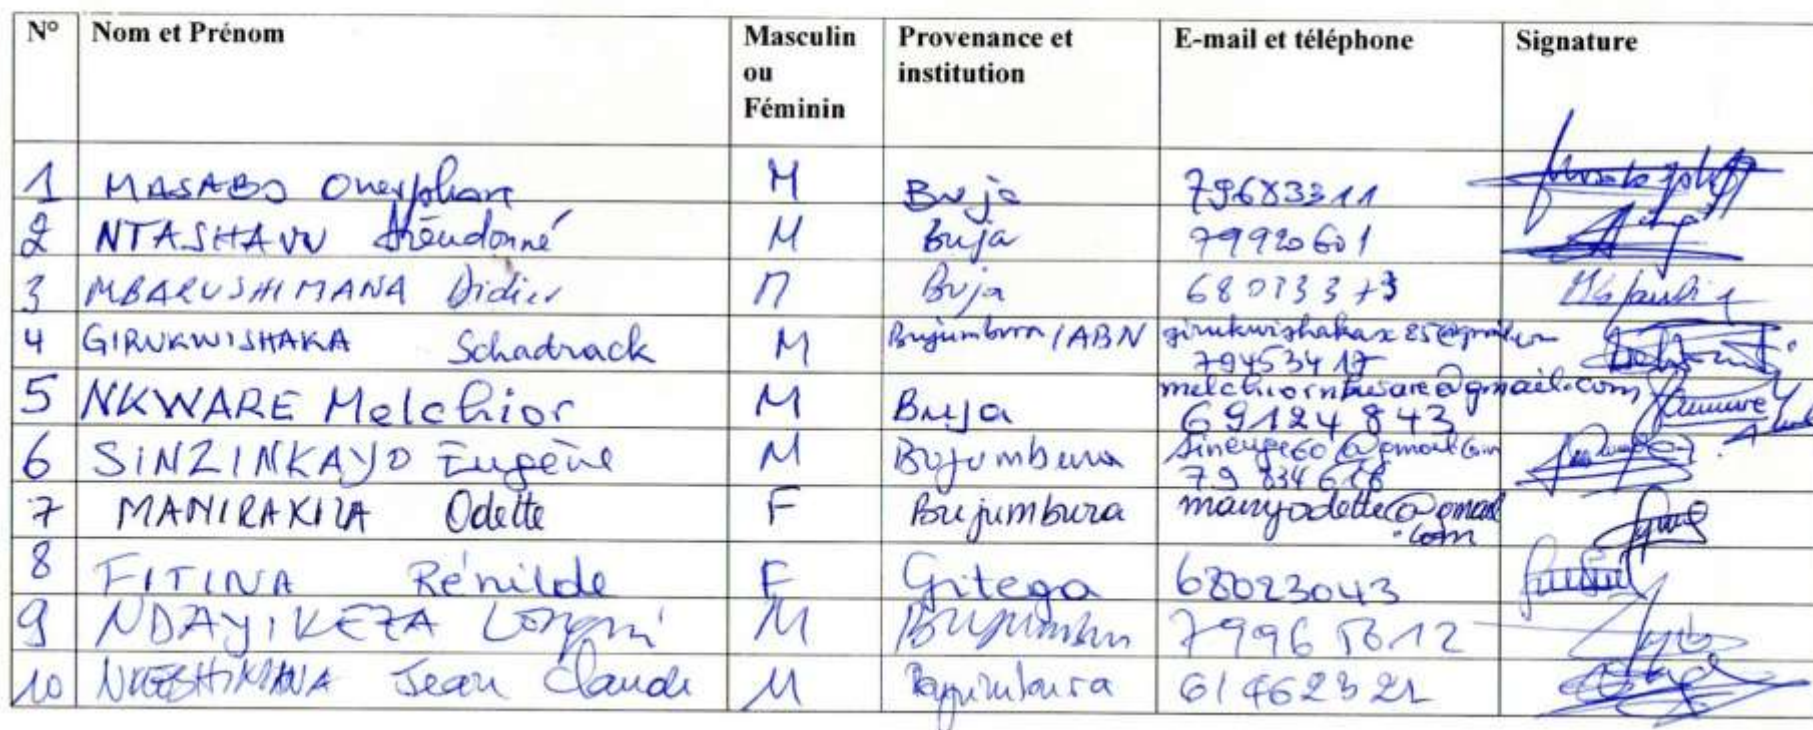 N° Nom et Prénom Masculin ou Féminin Provenance et institution E-mail et téléphone Signature
1 MASABO Onesphore M Buja 79683311
2 NTASHAVU Dieudonné M Buja 79920601
3 MBARUSHIMANA Didier M Buja
4 GIRUKWISHAKA Schadrack M Bujumbura / ABN 79453417
5 NKWARE Melchior M Buja melchiornkware@gmail.com 69124843
6 SINZINKAYO Eugène M Bujumbura sineuge60@gmail.com 79834616
7 MANIRAKIZA Odette F Bujumbura manyodette@gmail.com
8 FITINA Rénilde F Gitega 68023043
9 NDAYIKEZA M Bujumbura
10 NKESHIMANA Jean Claude M Bujumbura